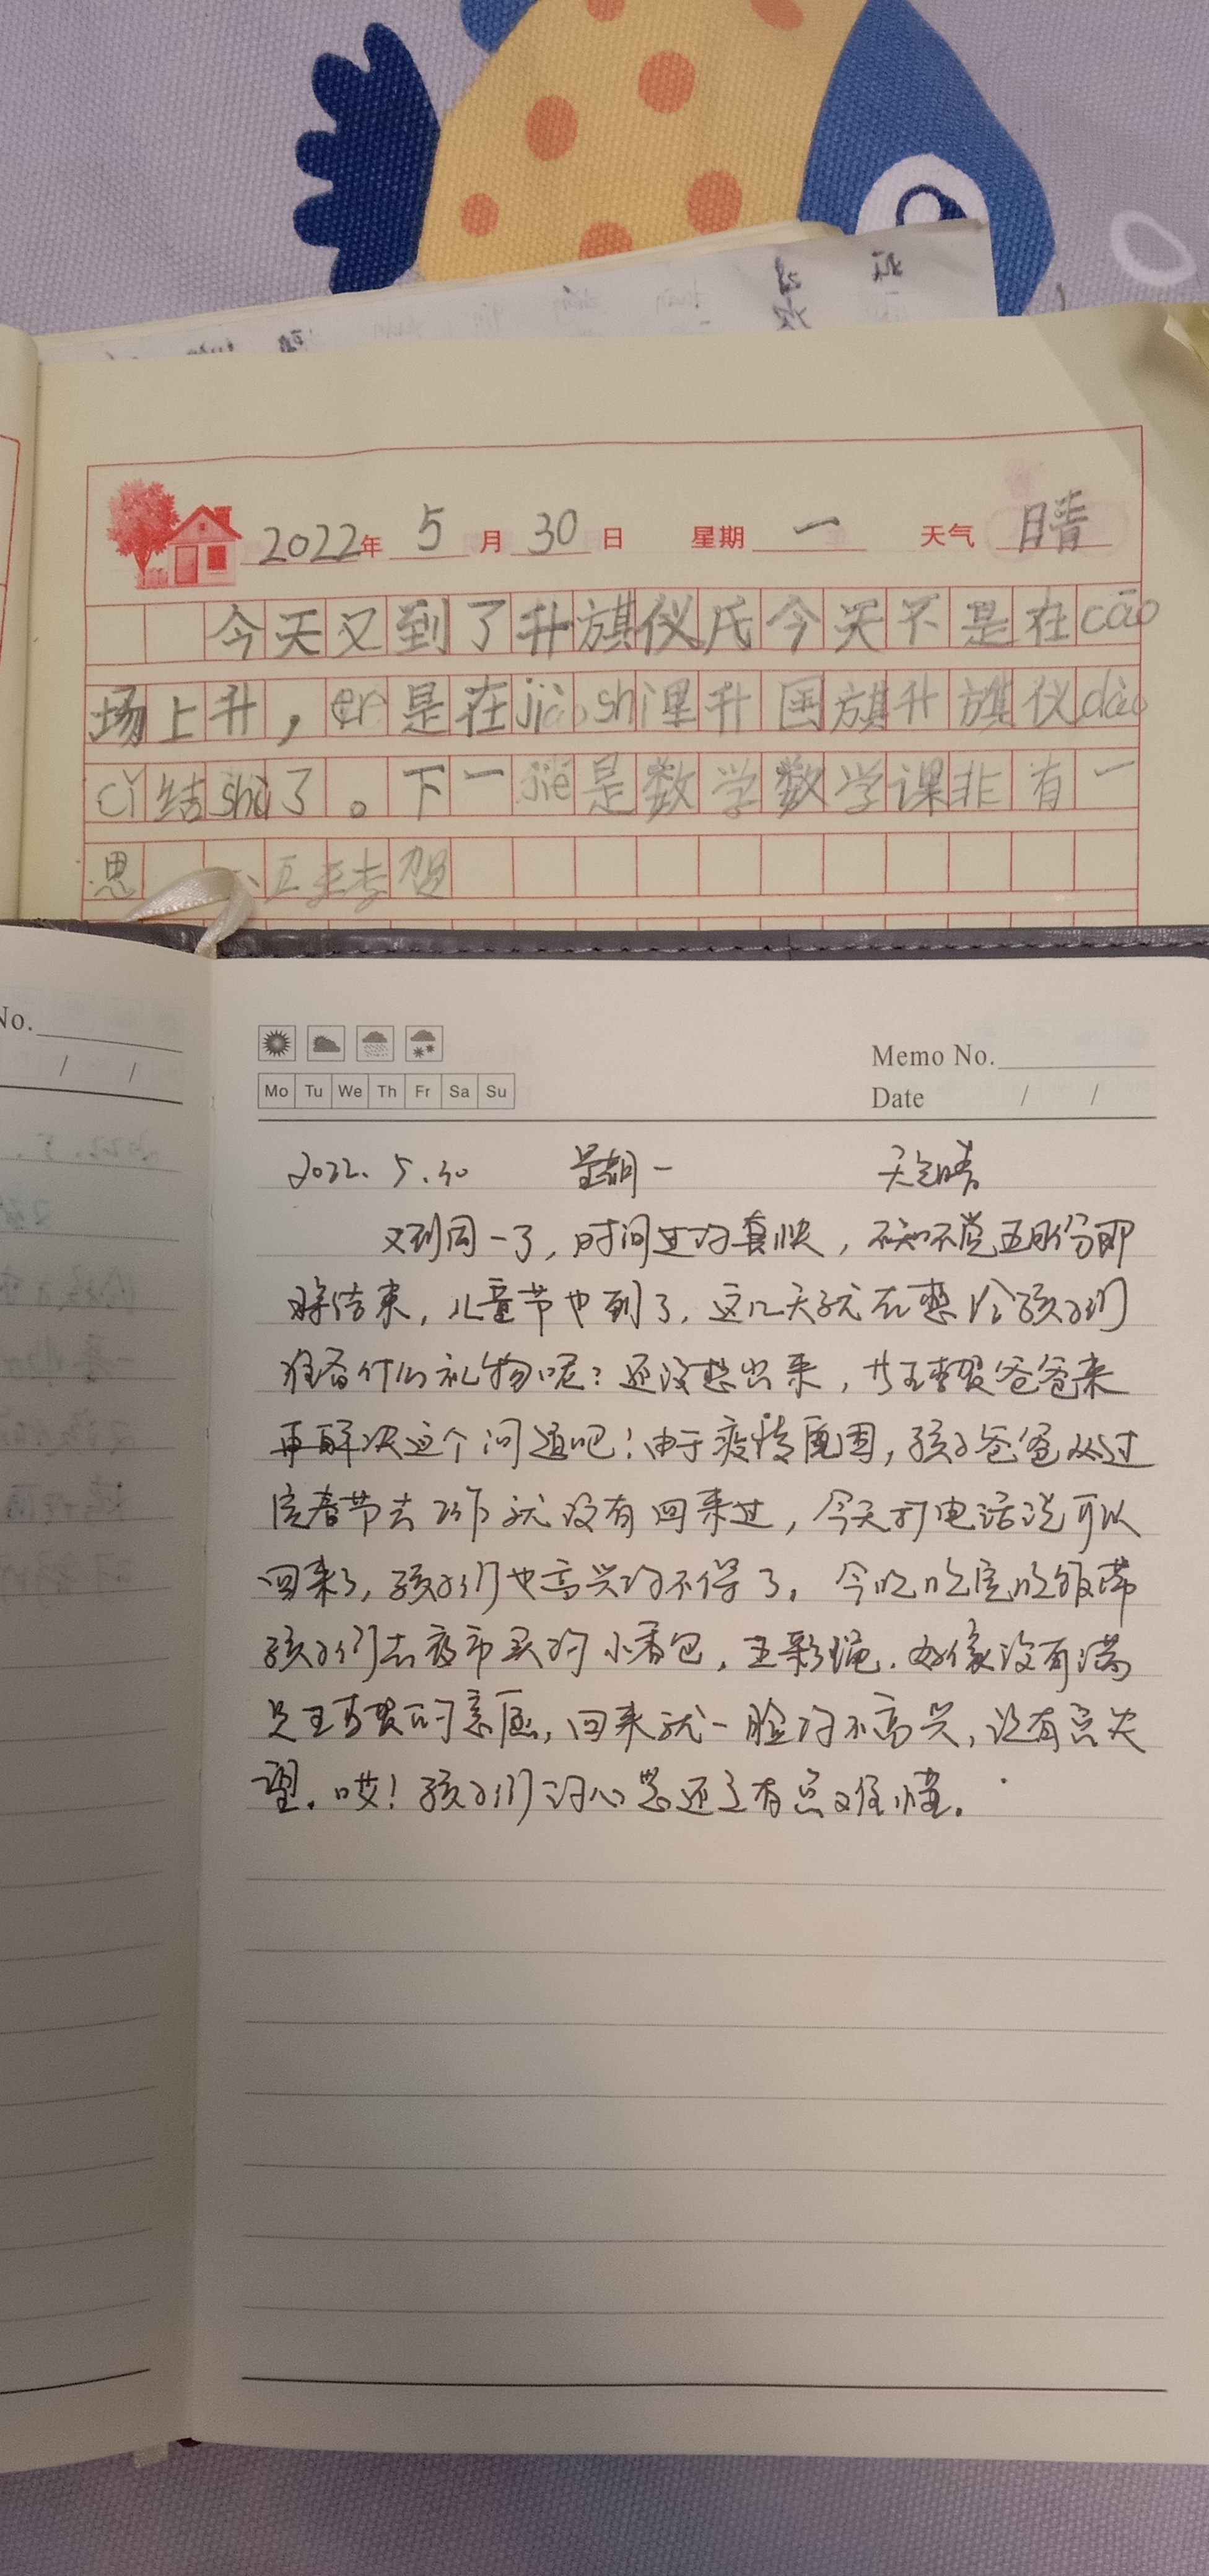 2022年 5 月 30 日 星期 一 天气 晴
今天又到了升旗仪氏今天不是在cāo
场上升，er是在jiào shì里升国旗升旗仪dào
cǐ结shù了。下一jié是数学数学课非有一
思
No.
/ /
Memo No.
Mo Tu We Th Fr Sa Su
Date / /
2022.5.30 星期一 天气晴
又到周一了，时间过的真快，不知不觉五月份即
将结束，儿童节也到了，这几天就在想给孩子们
准备什么礼物呢？还没想出来，等王李贺爸爸来
再解决这个问题吧！由于疫情原因，孩子爸爸从过
完春节去工作就没有回来过，今天打电话说可以
回来了，孩子们也高兴的不得了。今晚吃完晚饭带
孩子们去夜市买的小香包，五彩绳，好像没有满
足王李贺的意愿，回来就一脸的不高兴，说有点失
望。哎！孩子们的心思还是有点难懂。